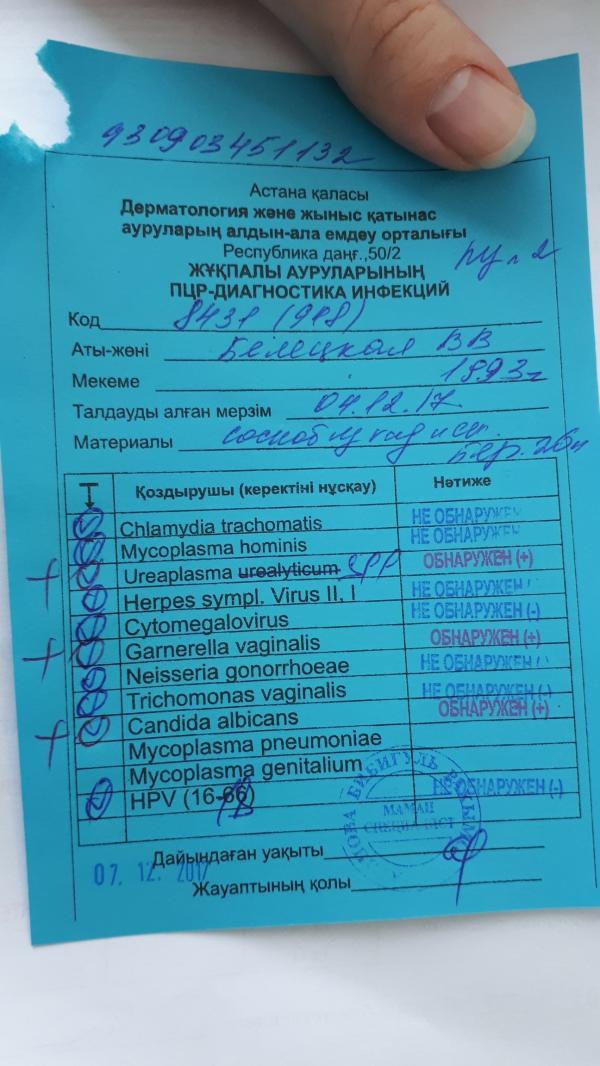 930903451132
Астана қаласы
Дерматология және жыныс қатынас
ауруларың алдын-ала емдеу орталығы
Республика даңғ.,50/2
ЖҰҚПАЛЫ АУРУЛАРЫНЫҢ
ПЦР-ДИАГНОСТИКА ИНФЕКЦИЙ
Код 8431 (918)
Аты-жөні Белецкая ВВ
Мекеме 1893г
Талдауды алған мерзім 04.12.17
Материалы соскоб
Т Қоздырушы (керектіні нұсқау) Нәтиже
Chlamydia trachomatis НЕ ОБНАРУЖЕН
Mycoplasma hominis НЕ ОБНАРУЖЕН
+ Ureaplasma urealyticum spp ОБНАРУЖЕН (+)
Herpes sympl. Virus II, I НЕ ОБНАРУЖЕН
Cytomegalovirus НЕ ОБНАРУЖЕН (-)
+ Garnerella vaginalis ОБНАРУЖЕН (+)
Neisseria gonorrhoeae НЕ ОБНАРУЖЕН
Trichomonas vaginalis НЕ ОБНАРУЖЕН (-)
+ Candida albicans ОБНАРУЖЕН (+)
Mycoplasma pneumoniae
Mycoplasma genitalium
HPV (16- НЕ ОБНАРУЖЕН (-)
БИБИГУЛЬ
МАМАН
СПЕЦИАЛИСТ
Дайындаған уақыты
07. 12. 2017
Жауаптының қолы